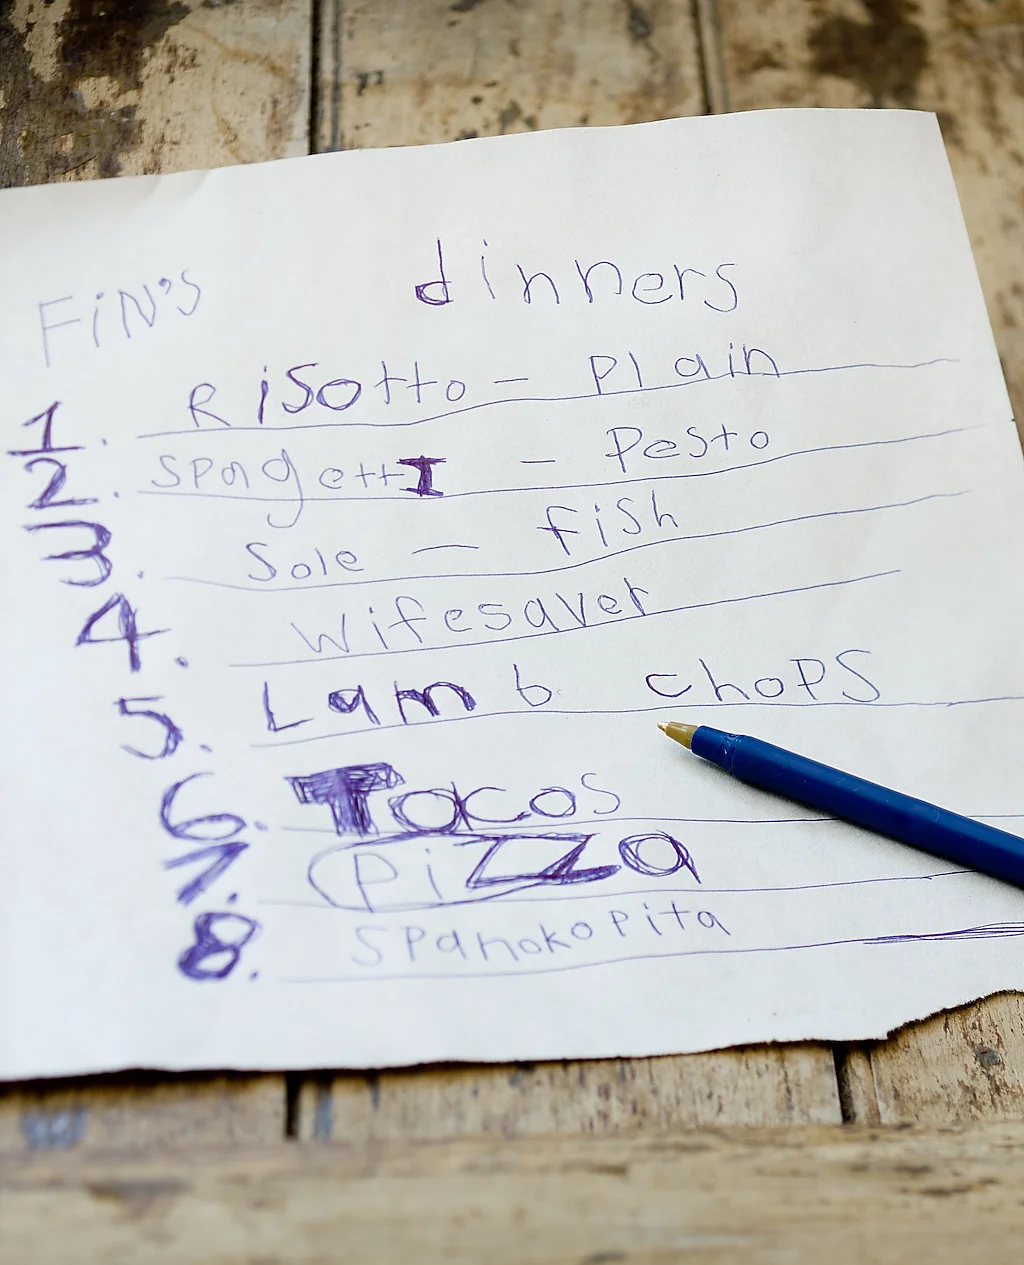 FiN's dinners
1. Risotto - Plain
2. spagettI - Pesto
3. Sole - fish
4. wifesaver
5. Lamb chops
6. Tacos
7. Pizza
8. spanokopita